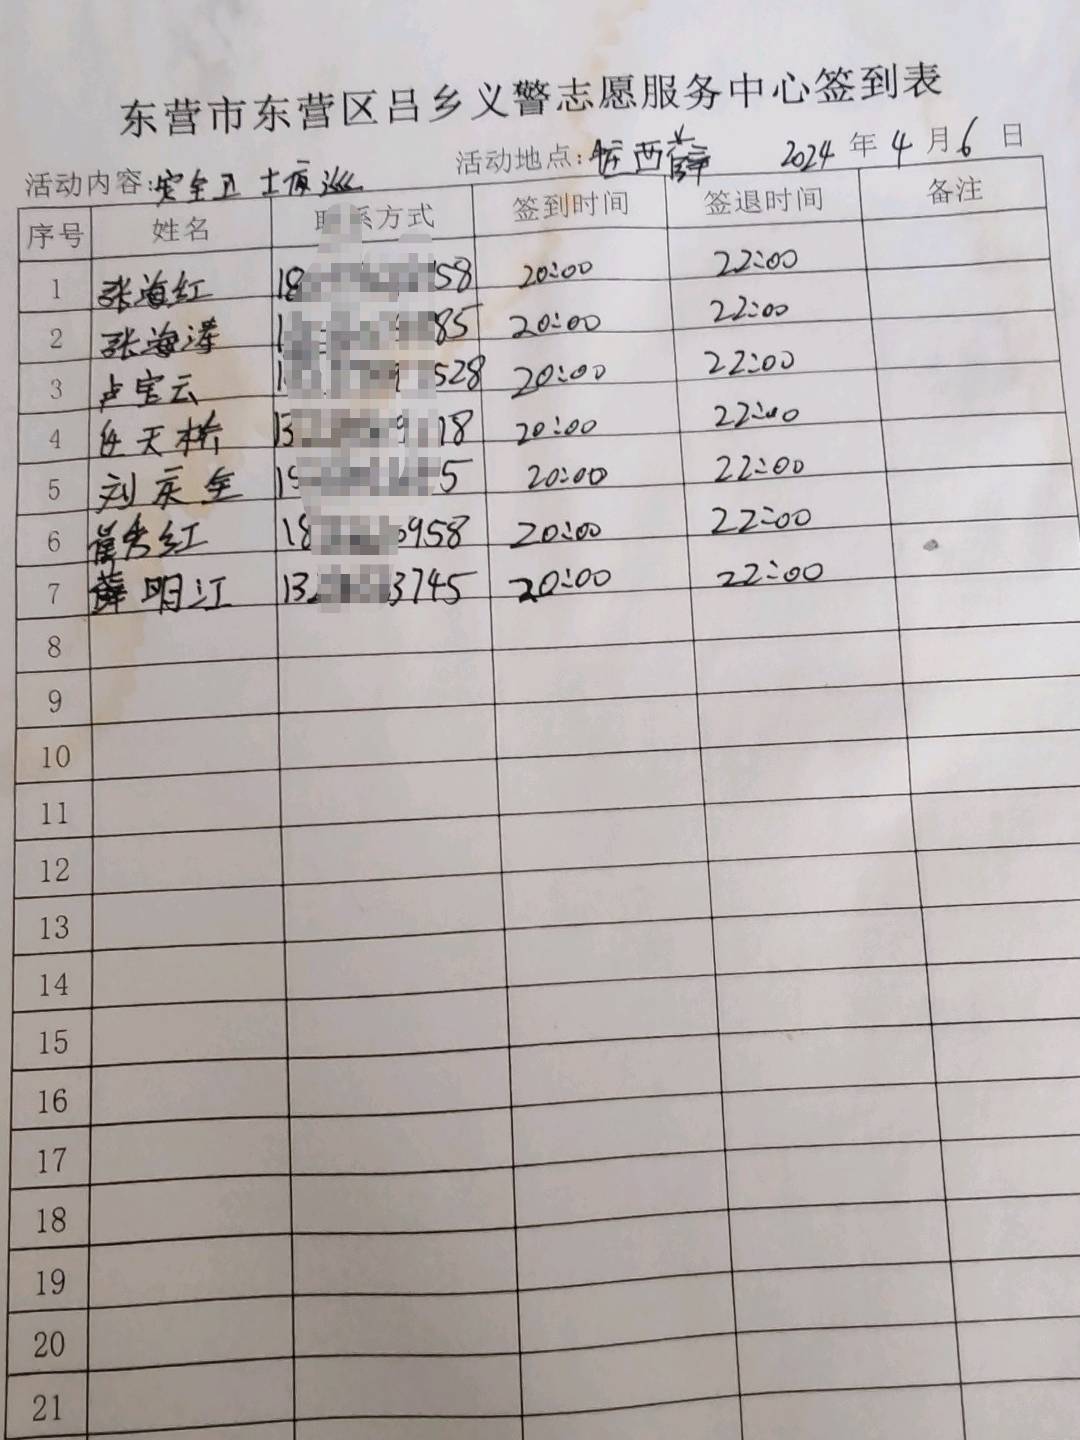 东营市东营区吕乡义警志愿服务中心签到表
活动内容:安全卫士夜巡 活动地点: 西薛 2024 年 4 月 6 日
序号 姓名 系方式 签到时间 签退时间 备注
1 张海红 18 58 20:00 22:00
2 张海涛 1 85 20:00 22:00
3 卢宝云 1 528 20:00 22:00
4 任天桥 13 9 18 20:00 22:00
5 刘庆全 5 20:00 22:00
6 红 18 0958 20:00 22:00
7 薛明江 13 3745 20:00 22:00
8
9
10
11
12
13
14
15
16
17
18
19
20
21